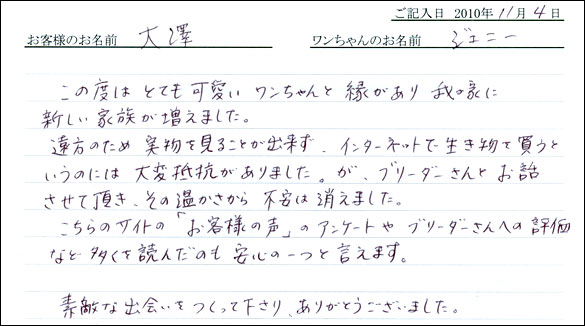 ご記入日 2010年 11月 4日
お客様のお名前 大澤 ワンちゃんのお名前 ジェニー
この度は とても 可愛い ワンちゃんと 縁があり 我が家に
新しい 家族が 増えました。
遠方のため 実物を見ることが出来ず、インターネットで 生き物を 買うと
いうのには 大変抵抗がありました。が、ブリーダーさんと お話
させて頂き、その温かさから 不安は 消えました。
こちらのサイトの「お客様の声」のアンケートや ブリーダーさんへの 評価
など 多くを 読んだのも 安心の一つと 言えます。
素敵な出会いを つくって下さり、ありがとうございました。